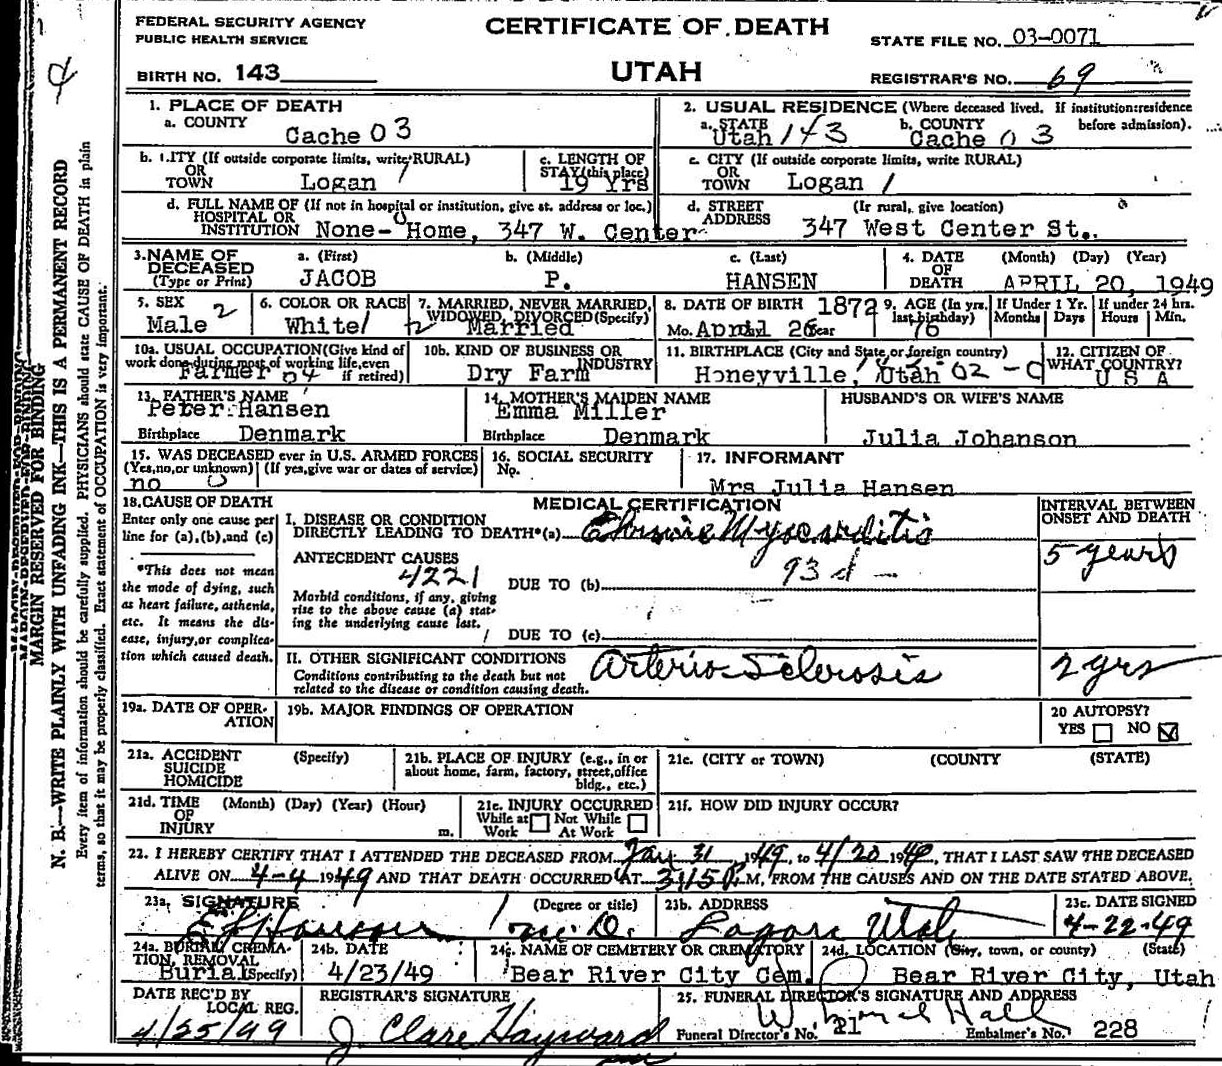 FEDERAL SECURITY AGENCY
PUBLIC HEALTH SERVICE
CERTIFICATE OF DEATH
STATE FILE NO. 03-0071
BIRTH NO. 143
UTAH
REGISTRAR'S NO. 69
1. PLACE OF DEATH
a. COUNTY
Cache 03
2. USUAL RESIDENCE (Where deceased lived. If institution:residence before admission).
a. STATE Utah 143 b. COUNTY Cache 03
b. CITY (If outside corporate limits, write RURAL)
OR
TOWN Logan 1
c. LENGTH OF
STAY (this place)
19 Yrs
c. CITY (If outside corporate limits, write RURAL)
OR
TOWN Logan 1
d. FULL NAME OF (If not in hospital or institution, give st. address or loc.)
HOSPITAL OR
INSTITUTION None-Home, 347 W. Center
d. STREET (If rural, give location)
ADDRESS 347 West Center St.
3. NAME OF
DECEASED
(Type or Print)
a. (First) b. (Middle) c. (Last)
JACOB P. HANSEN
4. DATE
OF
DEATH
(Month) (Day) (Year)
APRIL 20, 1949
5. SEX 2
Male
6. COLOR OR RACE
White 1
7. MARRIED, NEVER MARRIED,
WIDOWED, DIVORCED (Specify)
2 Married
8. DATE OF BIRTH 1872
Mo. April 26 Year
9. AGE (In yrs. last birthday)
76
If Under 1 Yr.
Months Days
If under 24 hrs.
Hours Min.
10a. USUAL OCCUPATION (Give kind of
work done during most of working life, even
if retired)
Farmer 04
10b. KIND OF BUSINESS OR
INDUSTRY
Dry Farm
11. BIRTHPLACE (City and State, or foreign country)
Honeyville, Utah
12. CITIZEN OF
WHAT COUNTRY?
U S A
13. FATHER'S NAME
Peter Hansen
Birthplace Denmark
14. MOTHER'S MAIDEN NAME
Emma Miller
Birthplace Denmark
HUSBAND'S OR WIFE'S NAME
Julia Johanson
15. WAS DECEASED ever in U.S. ARMED FORCES
(Yes, no, or unknown) (If yes, give war or dates of service)
no 0
16. SOCIAL SECURITY
No.
17. INFORMANT
Mrs Julia Hansen
18. CAUSE OF DEATH
Enter only one cause per
line for (a), (b), and (c)
*This does not mean
the mode of dying, such
as heart failure, asthenia,
etc. It means the dis-
ease, injury, or complica-
tion which caused death.
MEDICAL CERTIFICATION
I. DISEASE OR CONDITION
DIRECTLY LEADING TO DEATH*(a) Chronic Myocarditis
ANTECEDENT CAUSES
4221
93 d -
DUE TO (b)
Morbid conditions, if any, giving
rise to the above cause (a) stat-
ing the underlying cause last.
DUE TO (c)
II. OTHER SIGNIFICANT CONDITIONS
Conditions contributing to the death but not
related to the disease or condition causing death.
Arterio-Sclerosis
INTERVAL BETWEEN
ONSET AND DEATH
5 years
2 yrs
19a. DATE OF OPER-
ATION
19b. MAJOR FINDINGS OF OPERATION
20 AUTOPSY?
YES NO
21a. ACCIDENT (Specify)
SUICIDE
HOMICIDE
21b. PLACE OF INJURY (e.g., in or
about home, farm, factory, street, office
bldg., etc.)
21c. (CITY or TOWN) (COUNTY) (STATE)
21d. TIME (Month) (Day) (Year) (Hour)
OF
INJURY m.
21e. INJURY OCCURRED
While at Work Not While At Work
21f. HOW DID INJURY OCCUR?
22. I HEREBY CERTIFY THAT I ATTENDED THE DECEASED FROM Jan 31, 1949, to 4/20 1949, THAT I LAST SAW THE DECEASED
ALIVE ON 4-4 1949 AND THAT DEATH OCCURRED AT 3:15 P.M, FROM THE CAUSES AND ON THE DATE STATED ABOVE.
23a. SIGNATURE (Degree or title)
M.D.
23b. ADDRESS
Logan Utah
23c. DATE SIGNED
4-22-49
24a. BURIAL, CREMA-
TION, REMOVAL
Burial (Specify)
24b. DATE
4/23/49
24c. NAME OF CEMETERY OR CREMATORY
Bear River City Cem.
24d. LOCATION (City, town, or county) (State)
Bear River City, Utah
DATE REC'D BY
LOCAL REG.
4/25/49
REGISTRAR'S SIGNATURE
J. Clare Hayward
25. FUNERAL DIRECTOR'S SIGNATURE AND ADDRESS
Hall
Funeral Director's No. 21 Embalmer's No. 228
MARGIN RESERVED FOR BINDING
N. B.—WRITE PLAINLY WITH UNFADING INK—THIS IS A PERMANENT RECORD
Every item of information should be carefully supplied. PHYSICIANS should state CAUSE OF DEATH in plain
terms, so that it may be properly classified. Exact statement of OCCUPATION is very important.